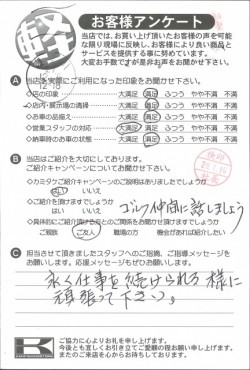 軽
お客様アンケート
当店では、お買い上げ頂いたお客様の声を可能
な限り現場に反映し、お客様により良い商品と
サービスを提供する事に努めています。
大変お手数ですが是非お声をお聞かせ下さい。
A 当店を実際にご利用になった印象をお聞かせ下さい。
◇店の印象 大満足 満足 ふつう やや不満 不満
◇店内・展示場の清掃 大満足 満足 ふつう やや不満 不満
◇お車の品揃え 大満足 満足 ふつう やや不満 不満
◇営業スタッフの対応 大満足 満足 ふつう やや不満 不満
◇納車時のお車の状態 大満足 満足 ふつう やや不満 不満
B 当店はご紹介を大切にしております。
ご紹介キャンペーンについてお聞かせ下さい。
◇カミタケご紹介キャンペーンのご説明はありましたでしょうか
はい いいえ
◇ご紹介を頂けますでしょうか
はい いいえ
ゴルフ仲間に話しましょう
ご親族 ご友人 職場の方 機会があれば紹介したい
C 担当させて頂きましたスタッフへのご指摘、ご指導メッセージを
お願いします。応援メッセージもぜひお願いします。
永く仕事を続けられる様に
頑張って下さい。
K
ご協力に心よりお礼を申し上げます。
今後とも宜しくお引き立てご愛顧の程お願い申し上げます。
またのご来店を心からお待ちしております。